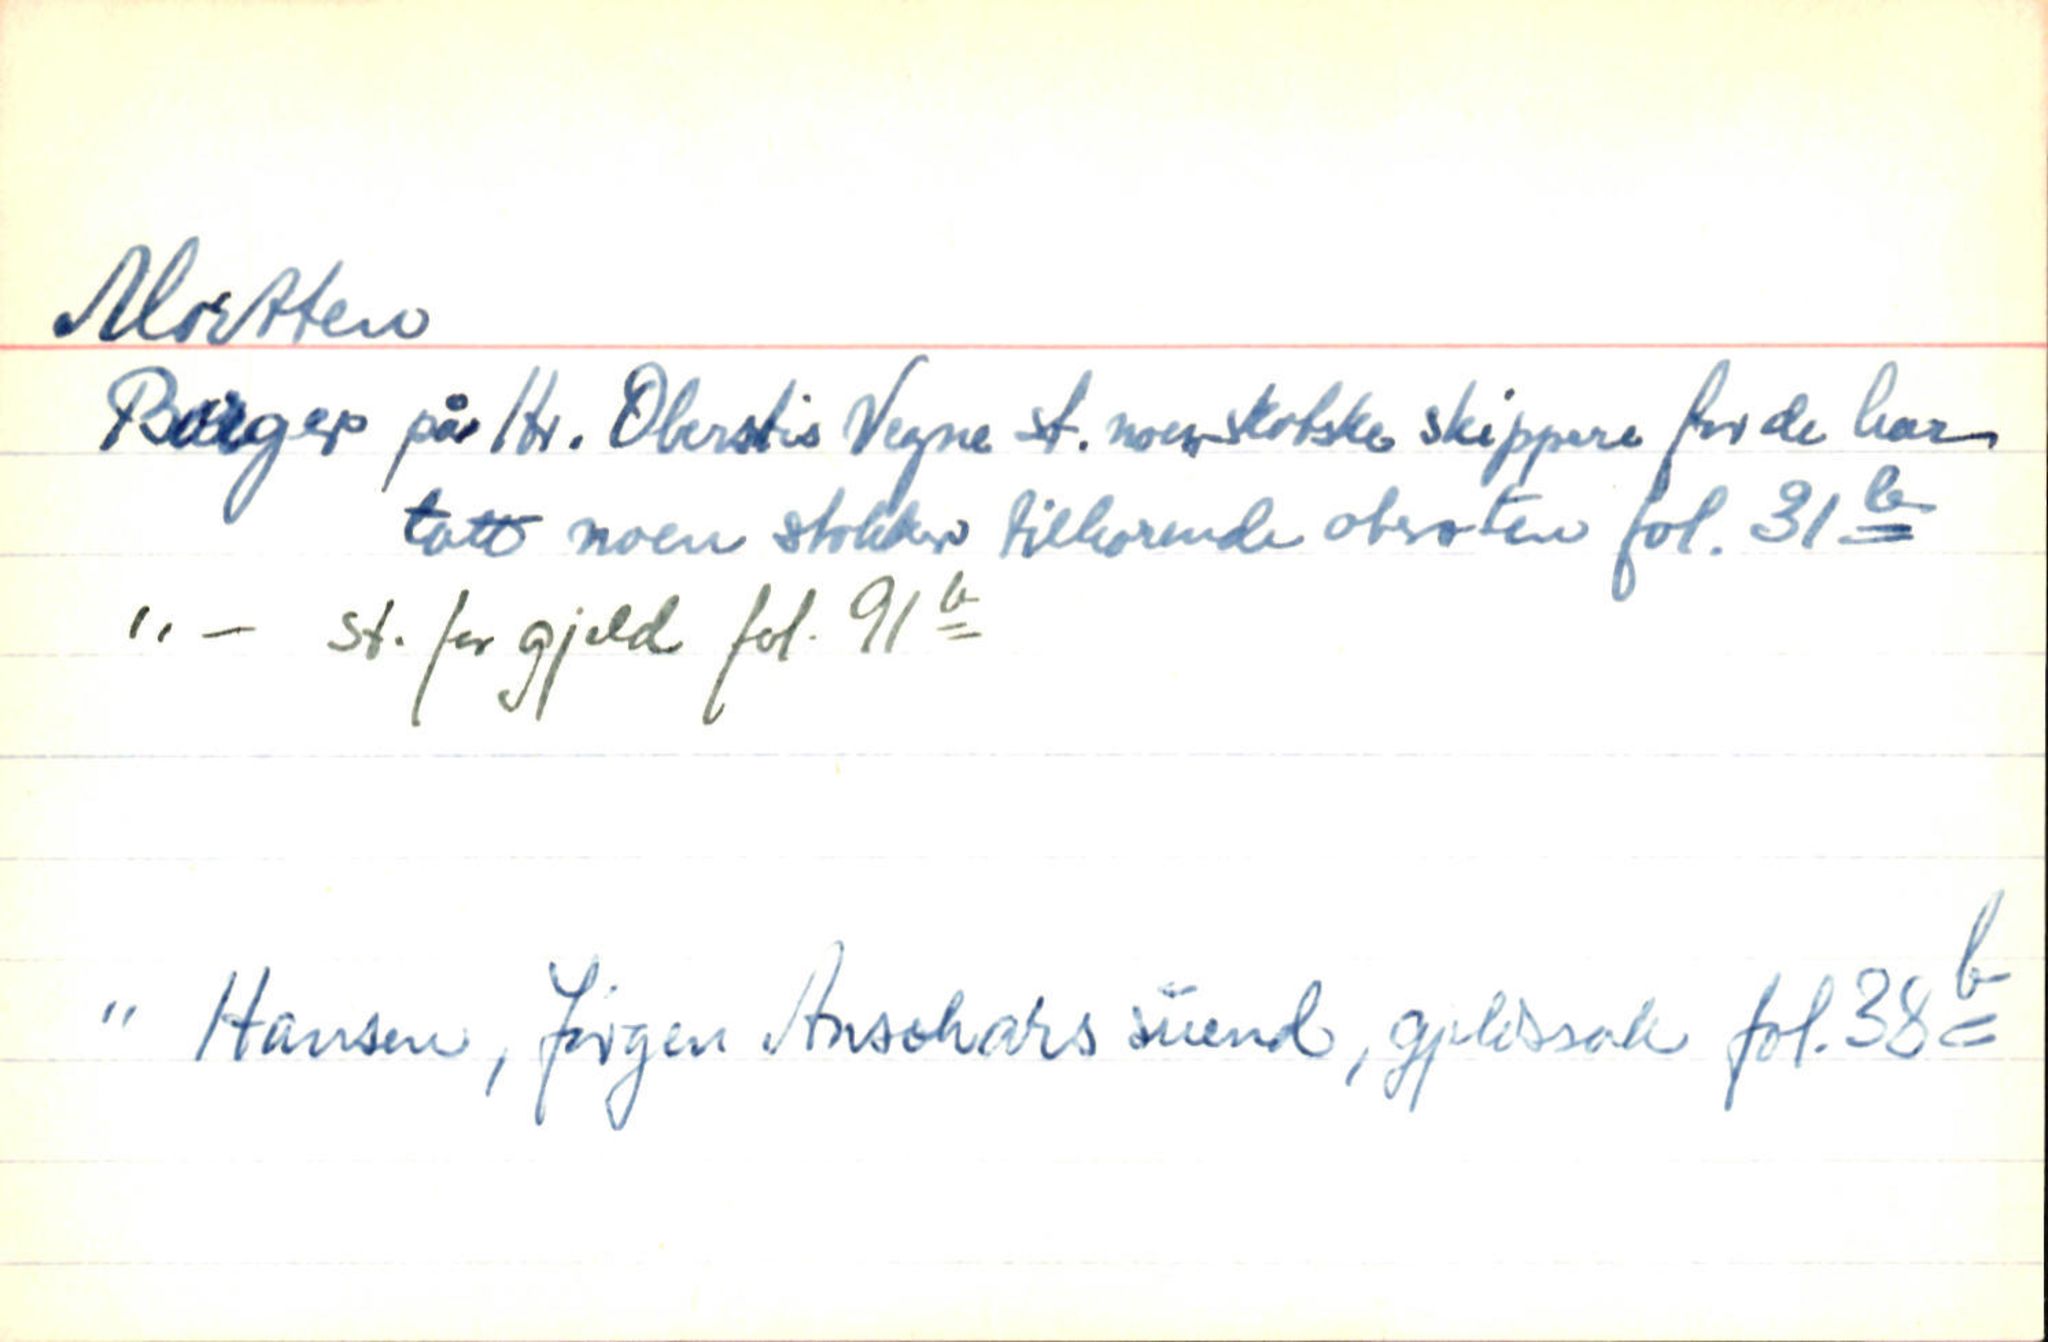 Mortten
Borger på Hr. Oberstis Vegne st. noen skotske skippere for de har
tatt noen stokker tilhørende obersten fol. 31 b
" — st. for gjeld fol. 91 b
" Hansen, Jørgen Anschars suend, gjeldssak fol. 38 b